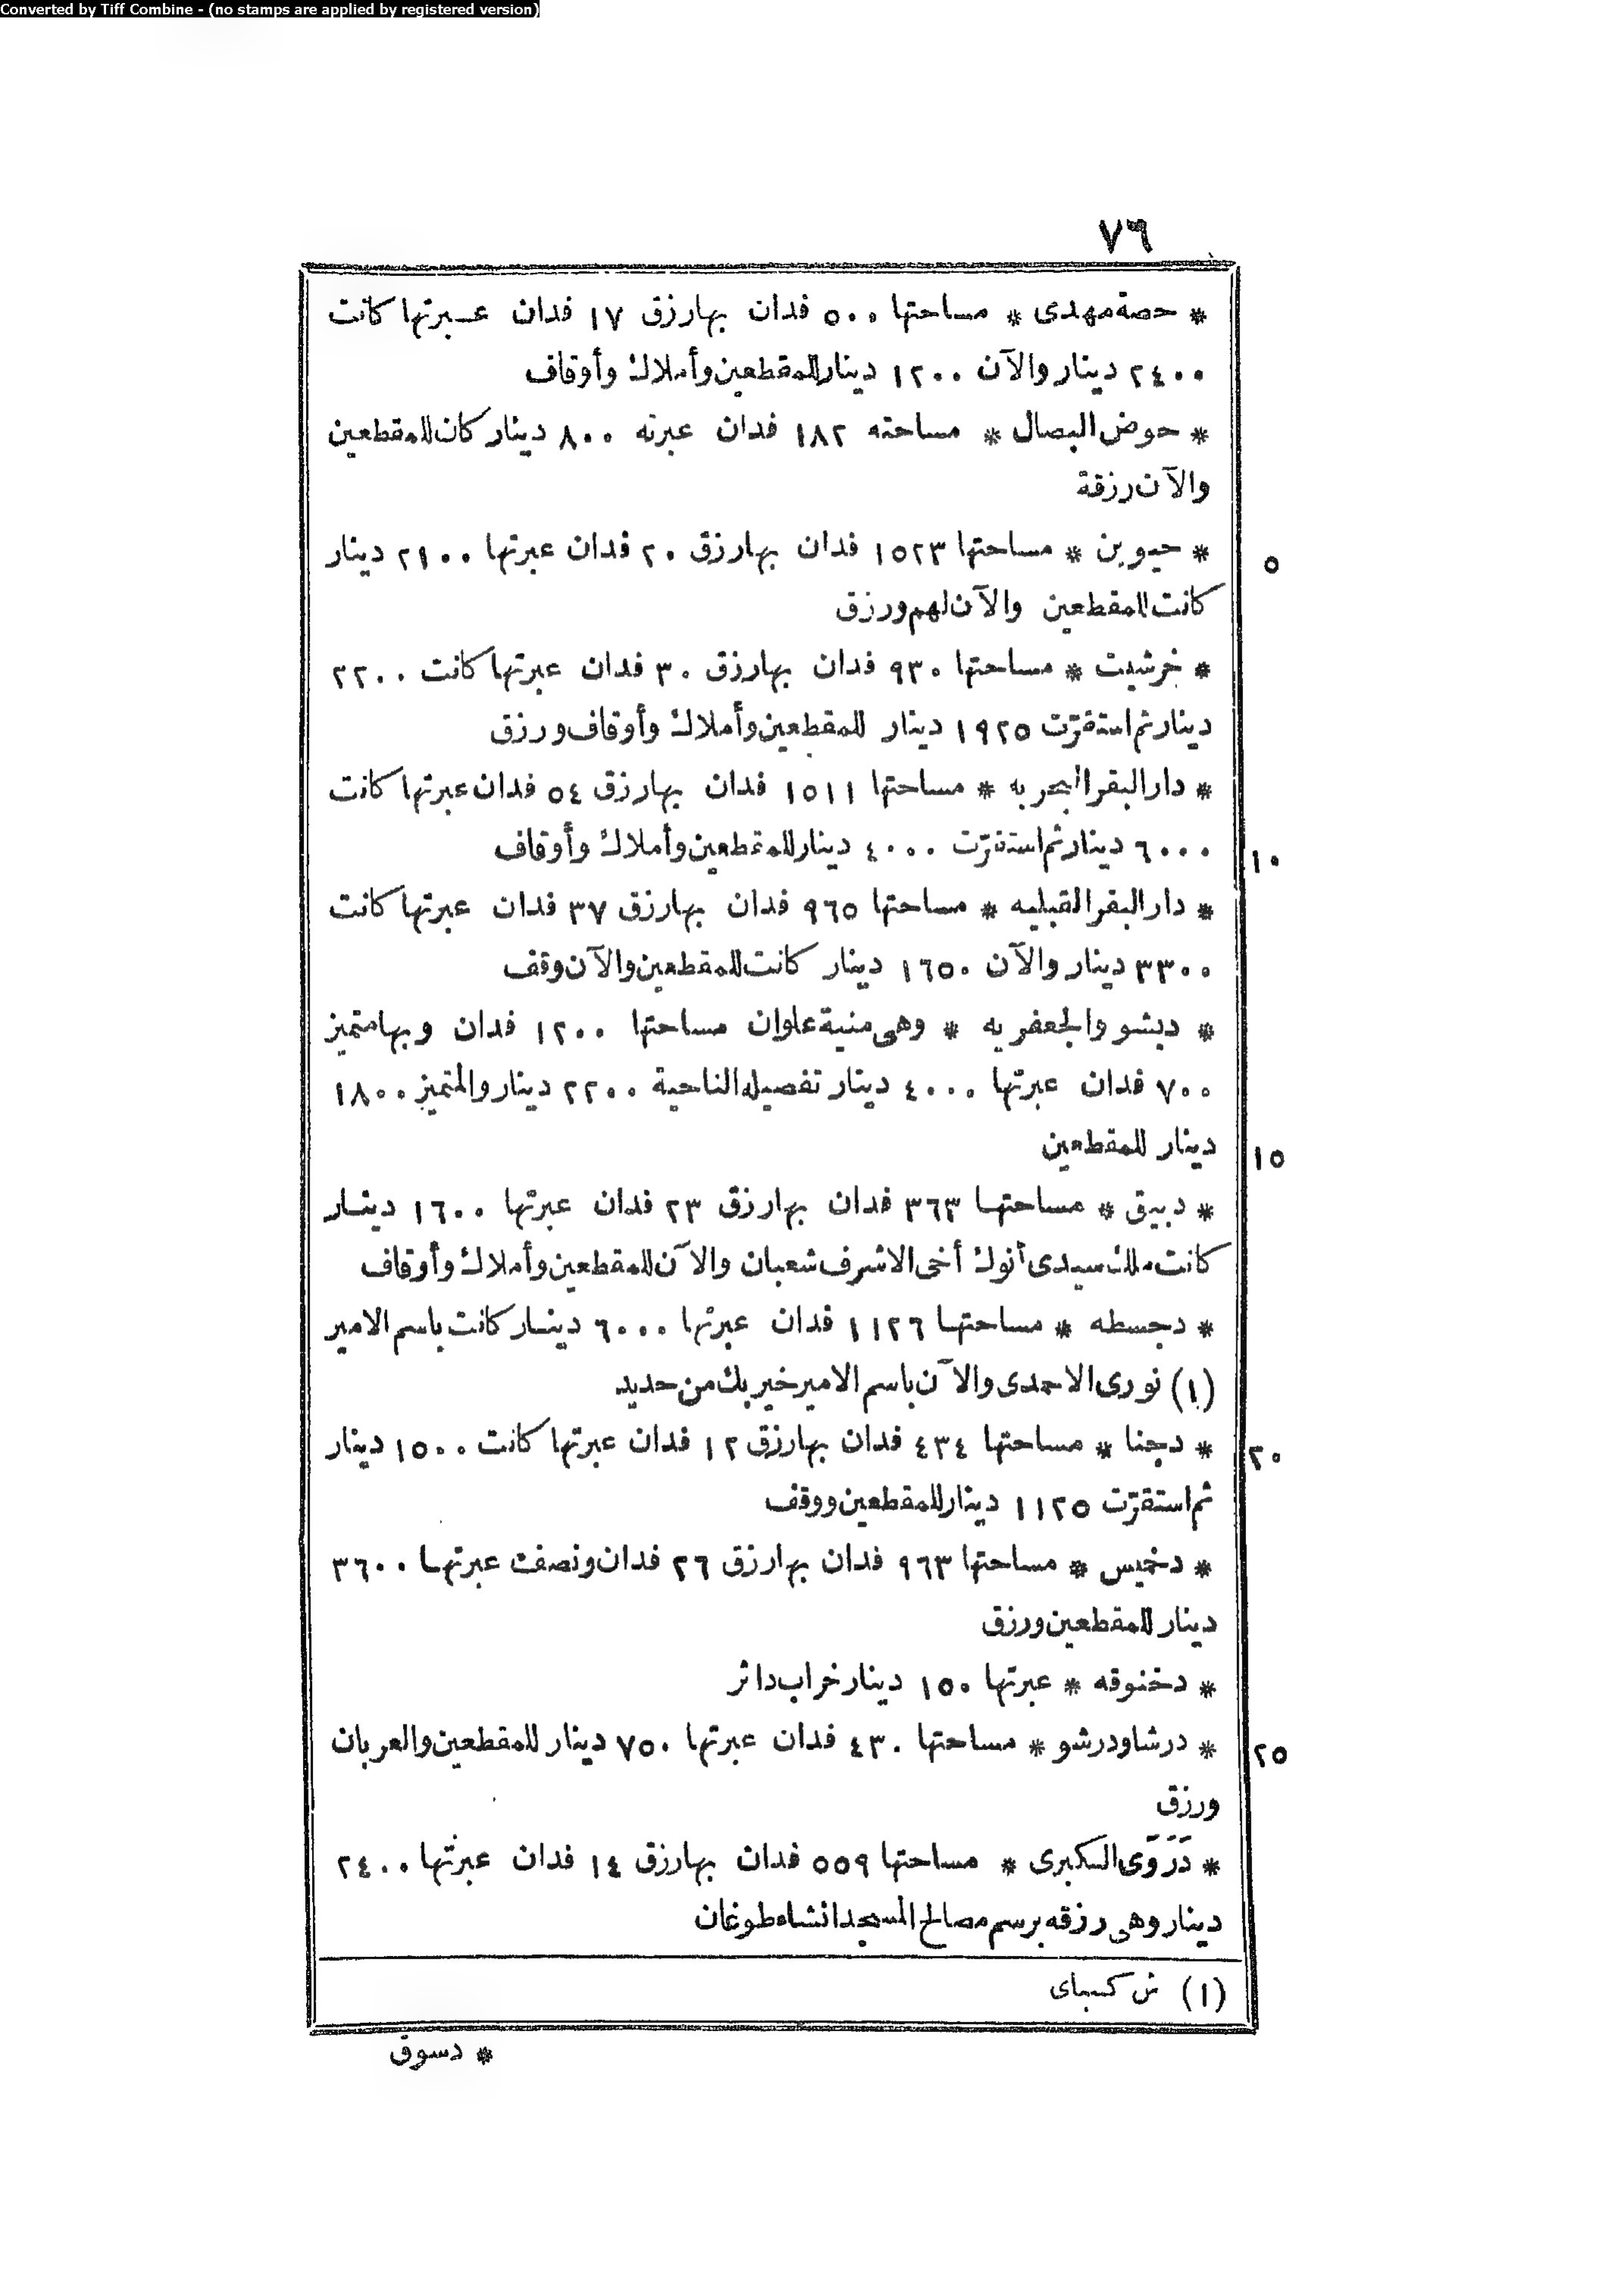 Converted by Tiff Combine - (no stamps are applied by registered version)
٧٦
* حصة مهدى * مساحتها ٥٠٠ فدان بها رزق ١٧ فدان عبرتها كانت
٢٤٠٠ دينار والآن ١٢٠٠ دينار للمقطعين وأملاك وأوقاف
* حوض البصال * مساحته ١٨٢ فدان عبرته ٨٠٠ دينار كان للمقطعين
والآن رزقة
* حيوين * مساحتها ١٥٢٣ فدان بها رزق ٢٠ فدان عبرتها ٢١٠٠ دينار
٥
كانت للمقطعين والآن لهم ورزق
* خرشيت * مساحتها ٩٣٠ فدان بها رزق ٣٠ فدان عبرتها كانت ٢٢٠٠
دينار ثم استقرّت ١٩٢٥ دينار للمقطعين وأملاك وأوقاف ورزق
* دار البقر البحريه * مساحتها ١٥١١ فدان بها رزق ٥٤ فدان عبرتها كانت
٦٠٠٠ دينار ثم استقرّت ٤٠٠٠ دينار للمقطعين وأملاك وأوقاف
١٠
* دار البقر القبليه * مساحتها ٩٦٥ فدان بها رزق ٣٧ فدان عبرتها كانت
٣٣٠٠ دينار والآن ١٦٥٠ دينار كانت للمقطعين والآن وقف
* دبشو والجعفريه * وهى منية علوان مساحتها ١٢٠٠ فدان وبها متميز
٧٠٠ فدان عبرتها ٤٠٠٠ دينار تفصيله الناحية ٢٢٠٠ دينار والمتميز ١٨٠٠
دينار للمقطعين
١٥
* دبيق * مساحتها ٣٦٣ فدان بها رزق ٢٣ فدان عبرتها ١٦٠٠ دينار
كانت ملك سيدى أنوك أخى الاشرف شعبان والآن للمقطعين وأملاك وأوقاف
* دجسطه * مساحتها ١١٢٦ فدان عبرتها ٦٠٠٠ دينار كانت باسم الامير
(١) نورى الاحمدى والآن باسم الامير خير بك من حديد
* دجنا * مساحتها ٤٣٤ فدان بها رزق ١٢ فدان عبرتها كانت ١٥٠٠ دينار
٢٠
ثم استقرّت ١١٢٥ دينار للمقطعين ووقف
* دخميس * مساحتها ٩٦٣ فدان بها رزق ٢٦ فدان ونصف عبرتها ٣٦٠٠
دينار للمقطعين ورزق
* دخنوقه * عبرتها ١٥٠ دينار خراب داثر
* درشا ودرشو * مساحتها ٤٣٠ فدان عبرتها ٧٥٠ دينار للمقطعين والعربان
٢٥
ورزق
* دَرَوَى الكبرى * مساحتها ٥٥٩ فدان بها رزق ١٤ فدان عبرتها ٢٤٠٠
دينار وهى رزقه برسم مصالح المسجد انشاه طوغان
(١) ش كسباى
* دسوق